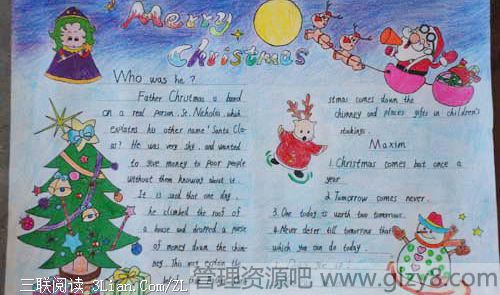 Merry
Christmas
Who was he?
Father Christmas is based
on a real person. St. Nicholas, which
explains his other name 'Santa Cla-
us'? He was very shy and wanted
to give money to poor people
without them knowing about it.
It is said that one day,
he climbed the roof of
a house and dropped a purse
of money down the chim-
ney. This may explain the
stmas comes down the
chimney and places gifts in children's
stockings.
Maxim
1. Christmas comes but once a
year.
2. Tomorrow comes never.
3. One today is worth two tomorrows.
4. Never defer till tomorrow that
which you can do today.
三联阅读 3Lian.Com/ZL
管理资源吧 www.glzy8.com